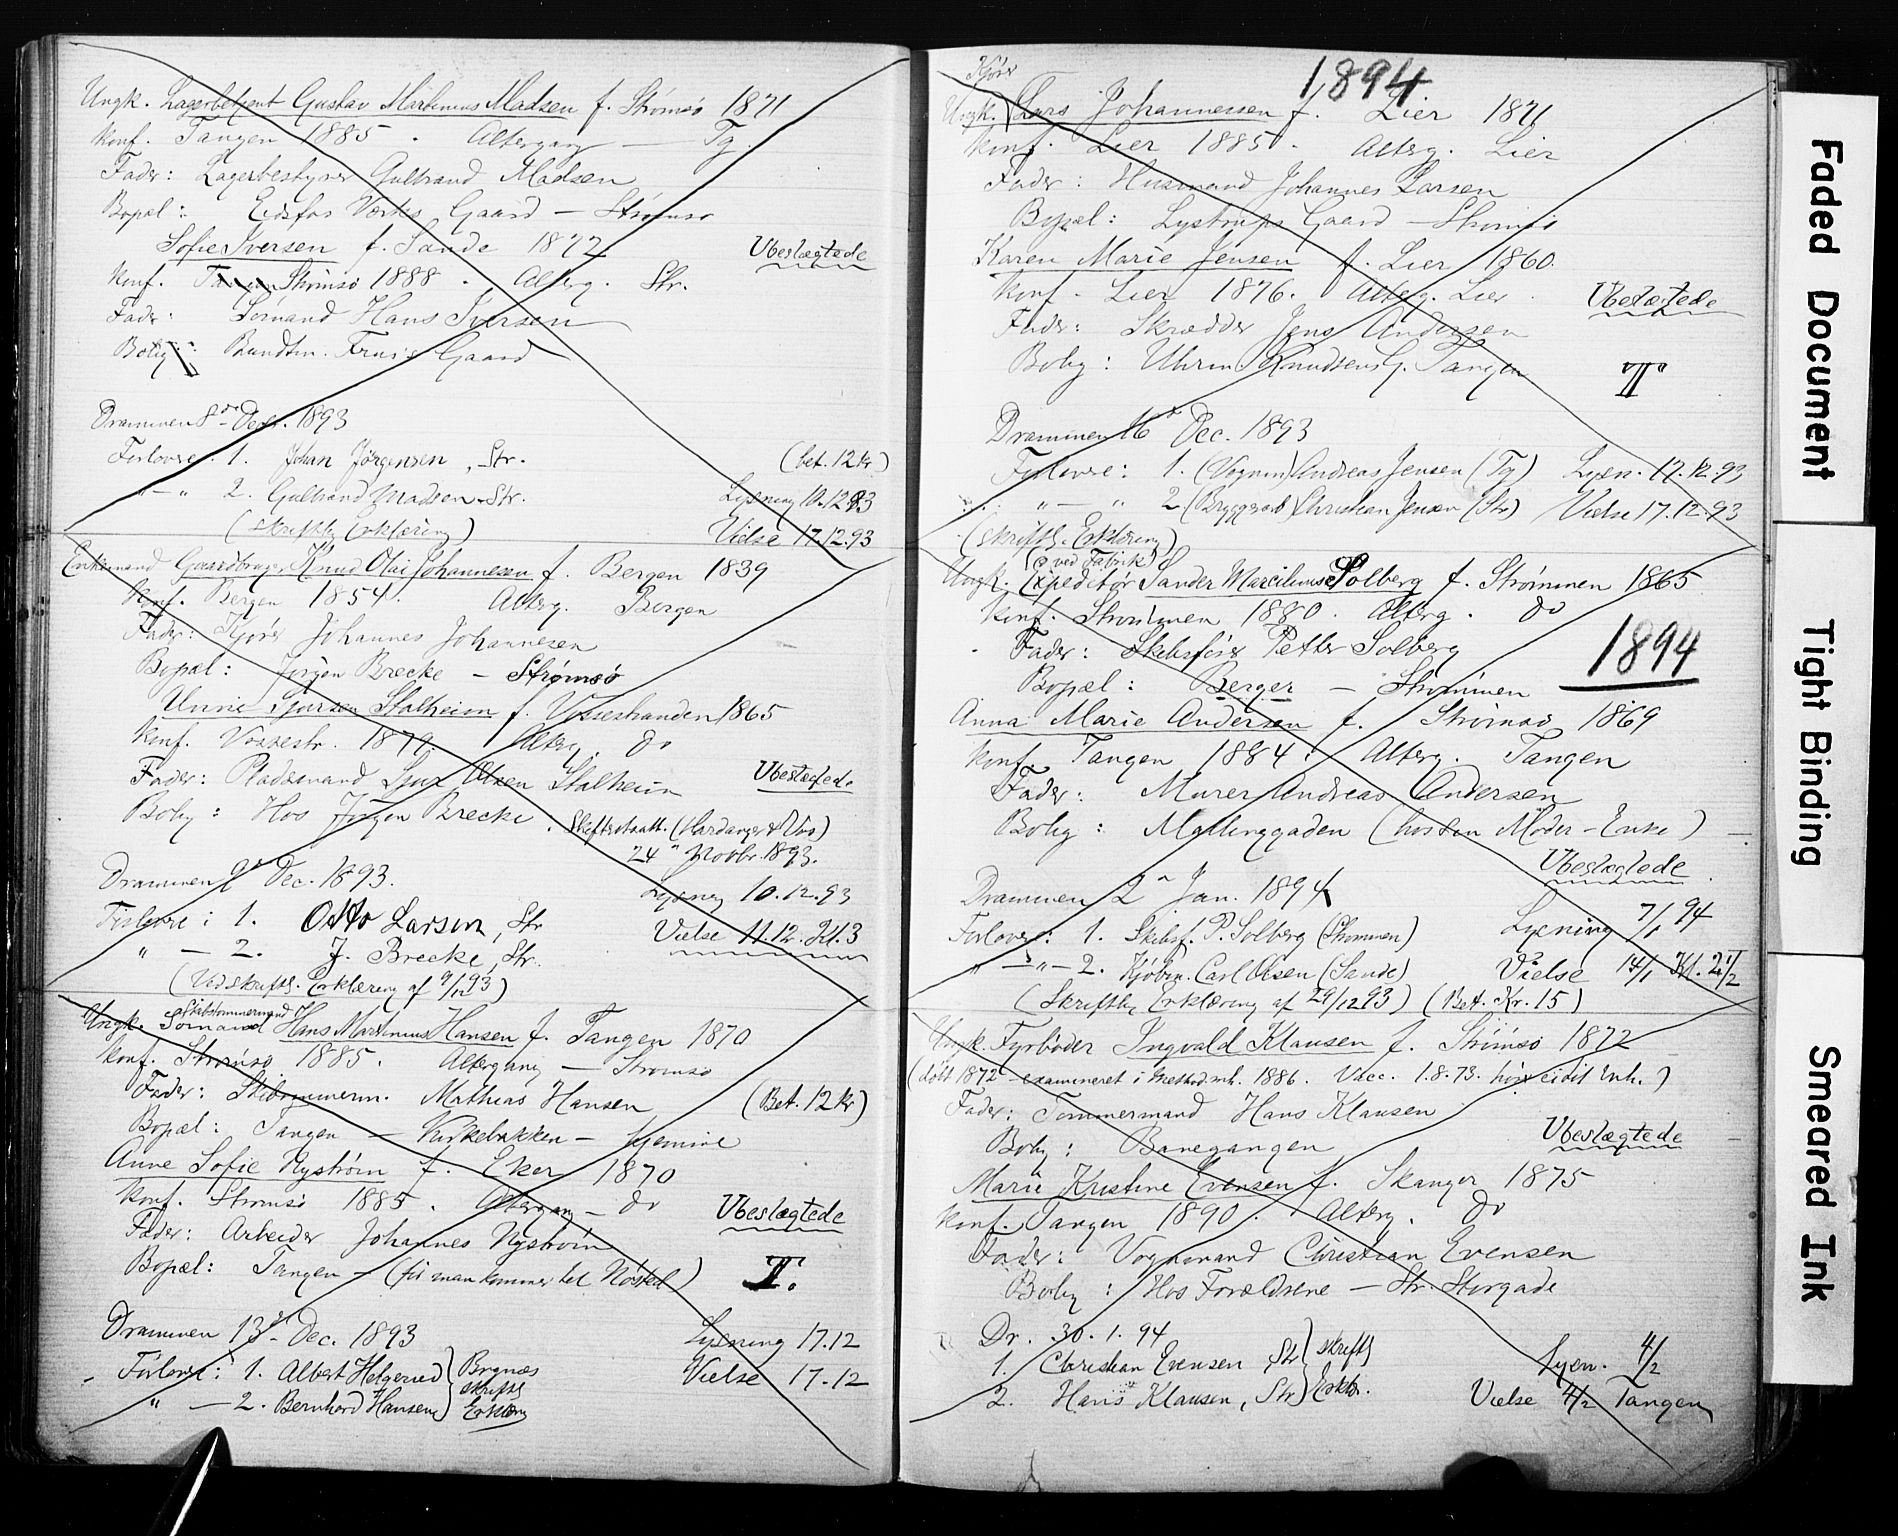 Ungk. Lagerbetjent Gustav Martinius Madsen f. Strømsø 1871
Konf. Tangen 1885 . Altergang — Tg.
Fader: Lagerbestyrer Gulbrand Madsen
Bopæl: Eidsfos Værks Gaard — Strømsø
Sofie Iversen f. Sande 1872
Ubeslægtede
Konf. Strømsø 1888 . Alterg. Str.
Fader: Sømand Hans Iversen
Bolig: Bundtm. Gaard
Drammen 8de Decr. 1893
Forlovere. 1. Johan Jørgensen, Str. (bet. 12 kr)
" — " 2. Gulbrand Madsen - Str. Lysning 10.12.93
(skriftlig Erklæring) Vielse 17.12.93
Enkemand Gaardbruger Knud Olai Johannesen f. Bergen 1839
Konf. Bergen 1854. Alterg. Bergen
Fader: Kjører Johannes Johannesen
Bopæl: Jørgen Brecke — Strømsø
Unnie Sjursen Stalheim f. Vossestranden 1865
Konf. Vossestr. 1879. Alterg. do
Fader: Pladsmand Sjur Olsen Stalheim
Ubeslægtede
Bolig: Hos Jørgen Brecke. Skifteattt. (Hardanger & Vos)
24" Novbr. 1893.
Drammen 9de Dec. 1893.
Lysning 10.12.93
Forlovere: 1. Otto Larsen, Str
Vielse 11.12. Kl. 3
" — 2. J. Brecke, Str.
(Ved skriftl. Erklæring af 9/12 93)
Skibstømmermand
Ungk. Sømand Hans Martinius Hansen f. Tangen 1870
Konf. Strømsø 1885. Altergang — Strømsø
Fader: Skibstømmerm. Mathias Hansen (Bet. 12 kr)
Bopæl: Tangen — Kirkebakken — hjemme
Anne Sofie Nystrøm f. Eker 1870
Konf. Strømsø 1885. Altergang — do
Ubeslægtede
Fader: Arbeider Johannes Nystrøm
Bopæl: Tangen — (før man kommer til Nøsted)
T.
Drammen 13de Dec. 1893
Lysning 17.12
Forlovere: 1. Albert Helgerud } Brgnæs
Vielse 17.12
" — 2. Bernhard Hansen } skriftl. Erklæring
1894
Kjører
Ungk. Lars Johannessen f. Lier 1871
Konf. Lier 1885. Alterg. Lier
Fader: Husmand Johannes Larsen
Bopæl: Lystrups Gaard — Strømsø
Karen Marie Jensen f. Lier 1860.
Konf. Lier 1876. Alterg. Lier.
Ubeslægtede
Fader: Skrædder Jens Andersen
Bolig: Uhrm. Knudsens G. Tangen
"T"
Drammen 16de Dec. 1893
Forlovere: 1. (Vognm) Andreas Jensen (Tg) Lysn. 17.12.93
" — " 2. (Bryggearb) Christian Jensen (Str) Vielse 17.12.93
(skriftl. Erklæring)
(o ved Fabrik)
Ungk. Expeditør Sander Marcilius Solberg f. Strømmen 1865
Konf. Strømmen 1880. Alterg. do
Fader: Skibsfører Petter Solberg
1894
Bopæl: Berger — Strømmen
Anna Marie Andersen f. Strømsø 1869
Konf. Tangen 1884. Alterg. Tangen
Fader: Murer Andreas Andersen
Bolig: Møllerggaden (hos sin Moder - Enke)
Ubeslægtede
Drammen 2den Jan. 1894
Lysning 7/1 94
Forlovere: 1. Skibsf. P. Solberg (Strømmen)
" — " — 2. Kjøbm. Carl Olsen (Sande) Vielse 14/1 Kl. 2 1/2
(Skriftlig Erklæring af 29/12 93) (Bet. Kr. 15)
Ungk. Fyrbøder Ingvald Klausen f. Strømsø 1872
(døbt 1872 - examineret i Methodmh. 1886. Vacc. 1.8.73.)
Fader: Tømmermand Hans Klausen
Bolig: Banegangen
Ubeslægtede
Marie Kristine Evensen f. Skanger 1875
Konf. Tangen 1890. Alterg. do
Fader: Vognmand Christian Evensen
Bolig: Hos Forældrene — Str. Storgade
Dr. 30.1.94
1. Christian Evensen Str } skriftl
Lysn. 4/2
2. Hans Klausen, Str } Erklr.
Vielse 4/2 Tangen
Faded Document
Tight Binding
Smeared Ink